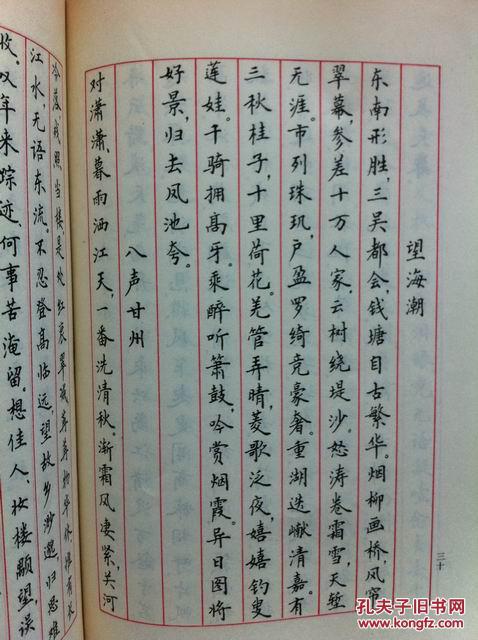 望海潮
东南形胜，三吴都会，钱塘自古繁华。烟柳画桥，风帘
翠幕，参差十万人家。云树绕堤沙。怒涛卷霜雪，天堑
无涯。市列珠玑，户盈罗绮竞豪奢。重湖迭巘清嘉。有
三秋桂子，十里荷花。羌管弄晴，菱歌泛夜，嬉嬉钓叟
莲娃。千骑拥高牙。乘醉听箫鼓，吟赏烟霞。异日图将
好景，归去凤池夸。
八声甘州
对潇潇、暮雨洒江天，一番洗清秋。渐霜风凄紧，关河
冷落，残照当楼。是处红衰翠减，苒苒物华休。惟有长
江水，无语东流。不忍登高临远，望故乡渺邈，归思难
收。叹年来踪迹，何事苦淹留。想佳人、妆楼颙望，误
三十
孔夫子旧书网
www.kongfz.com